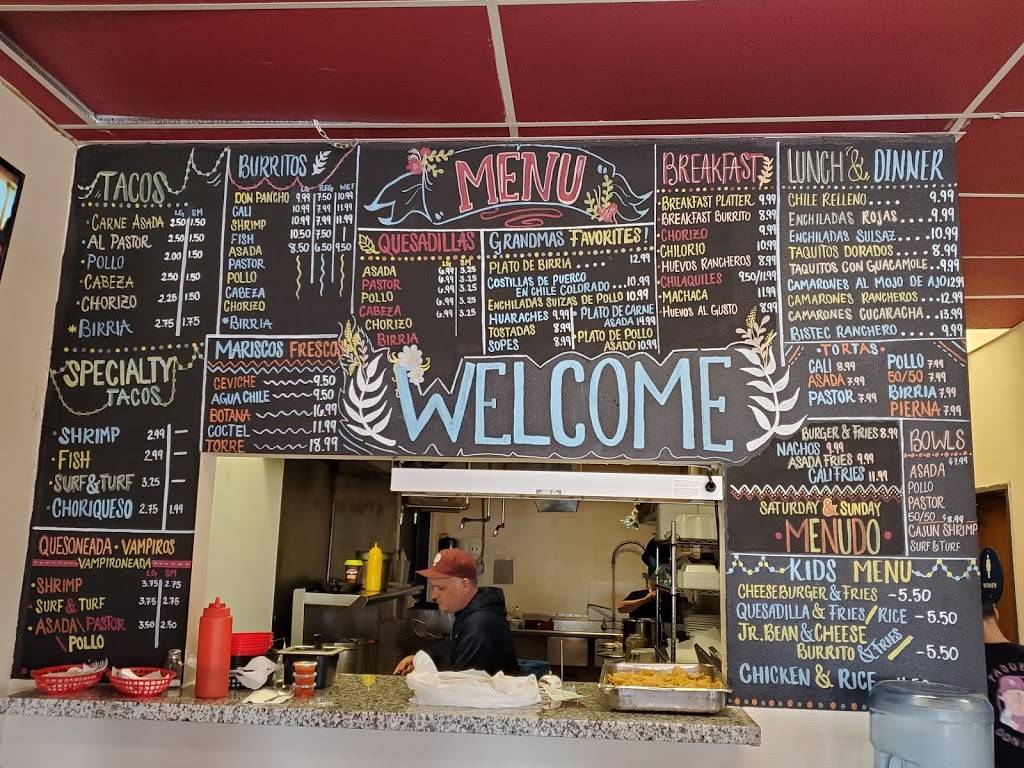 TACOS
LG SM
• CARNE ASADA 2.50 1.50
• AL PASTOR 2.50 1.50
• POLLO 2.00 1.50
• CABEZA 2.50 1.50
• CHORIZO 2.25 1.50
* BIRRIA 2.75 1.75
SPECIALTY
TACOS
• SHRIMP 2.99 —
• FISH 2.99 —
• SURF & TURF 3.25 —
• CHORIQUESO 2.75 1.99
QUESONEADA • VAMPIROS
VAMPIRONEADA
LG SM
• SHRIMP 3.75 2.75
• SURF & TURF 3.75 2.75
• ASADA \ PASTOR 3.50 2.50
\ POLLO
BURRITOS
LG REG WET
DON PANCHO 9.99 7.50 10.99
CALI 10.99 7.99 11.99
SHRIMP 10.99 7.99 11.99
FISH 10.50 7.50
ASADA 8.50 6.50 9.50
PASTOR
POLLO
CABEZA
CHORIZO
*BIRRIA
MARISCOS FRESCO
CEVICHE 9.50
AGUA CHILE 9.50
BOTANA 16.99
COCTEL 11.99
TORRE 18.99
MENU
QUESADILLAS
LG SM
ASADA 6.99 3.25
PASTOR 6.99 3.25
POLLO 6.99 3.25
CABEZA 6.99 3.25
CHORIZO
BIRRIA
GRANDMAS FAVORITES!
PLATO DE BIRRIA .... 12.99
COSTILLAS DE PUERCO
EN CHILE COLORADO ...10.99
ENCHILADAS SUIZAS DE POLLO 10.99
HUARACHES 9.99
TOSTADAS 8.99
SOPES 8.99
• PLATO DE CARNE
ASADA 14.99
• PLATO DE POLLO
ASADO 10.99
WELCOME
BREAKFAST
• BREAKFAST PLATTER 9.99
• BREAKFAST BURRITO 8.99
• CHORIZO 9.99
• CHILORIO 10.99
• HUEVOS RANCHEROS 8.99
• CHILAQUILES 9.50/11.99
• MACHACA 11.99
• HUEVOS AL GUSTO 8.99
LUNCH & DINNER
CHILE RELLENO .... 9.99
ENCHILADAS ROJAS .... 9.99
ENCHILADAS SULSAZ .... 10.99
TAQUITOS DORADOS .... 8.99
TAQUITOS CON GUACAMOLE ..9.99
CAMARONES AL MOJO DE AJO 12.99
CAMARONES RANCHEROS ...12.99
CAMARONES CUCARACHA ..13.99
BISTEC RANCHERO .... 9.99
• TORTAS •
CALI 8.99
ASADA 7.99
PASTOR 7.99
POLLO 7.99
50/50 7.99
BIRRIA 7.99
PIERNA 7.99
BURGER & FRIES 8.99
NACHOS 9.99
ASADA FRIES 9.99
CALI FRIES 11.99
BOWLS
$7.99
ASADA
POLLO
PASTOR
50/50 $8.99
CAJUN SHRIMP
SURF & TURF
SATURDAY & SUNDAY
• MENUDO •
KIDS MENU
CHEESEBURGER & FRIES - 5.50
QUESADILLA & FRIES / RICE - 5.50
JR. BEAN & CHEESE
BURRITO & FRIES - 5.50
CHICKEN & RICE
WOMEN